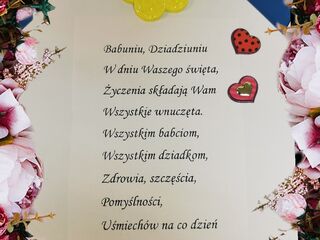 Babuniu, Dziadziuniu
W dniu Waszego święta,
Życzenia składają Wam
Wszystkie wnuczęta.
Wszystkim babciom,
Wszystkim dziadkom,
Zdrowia, szczęścia,
Pomyślności,
Uśmiechów na co dzień